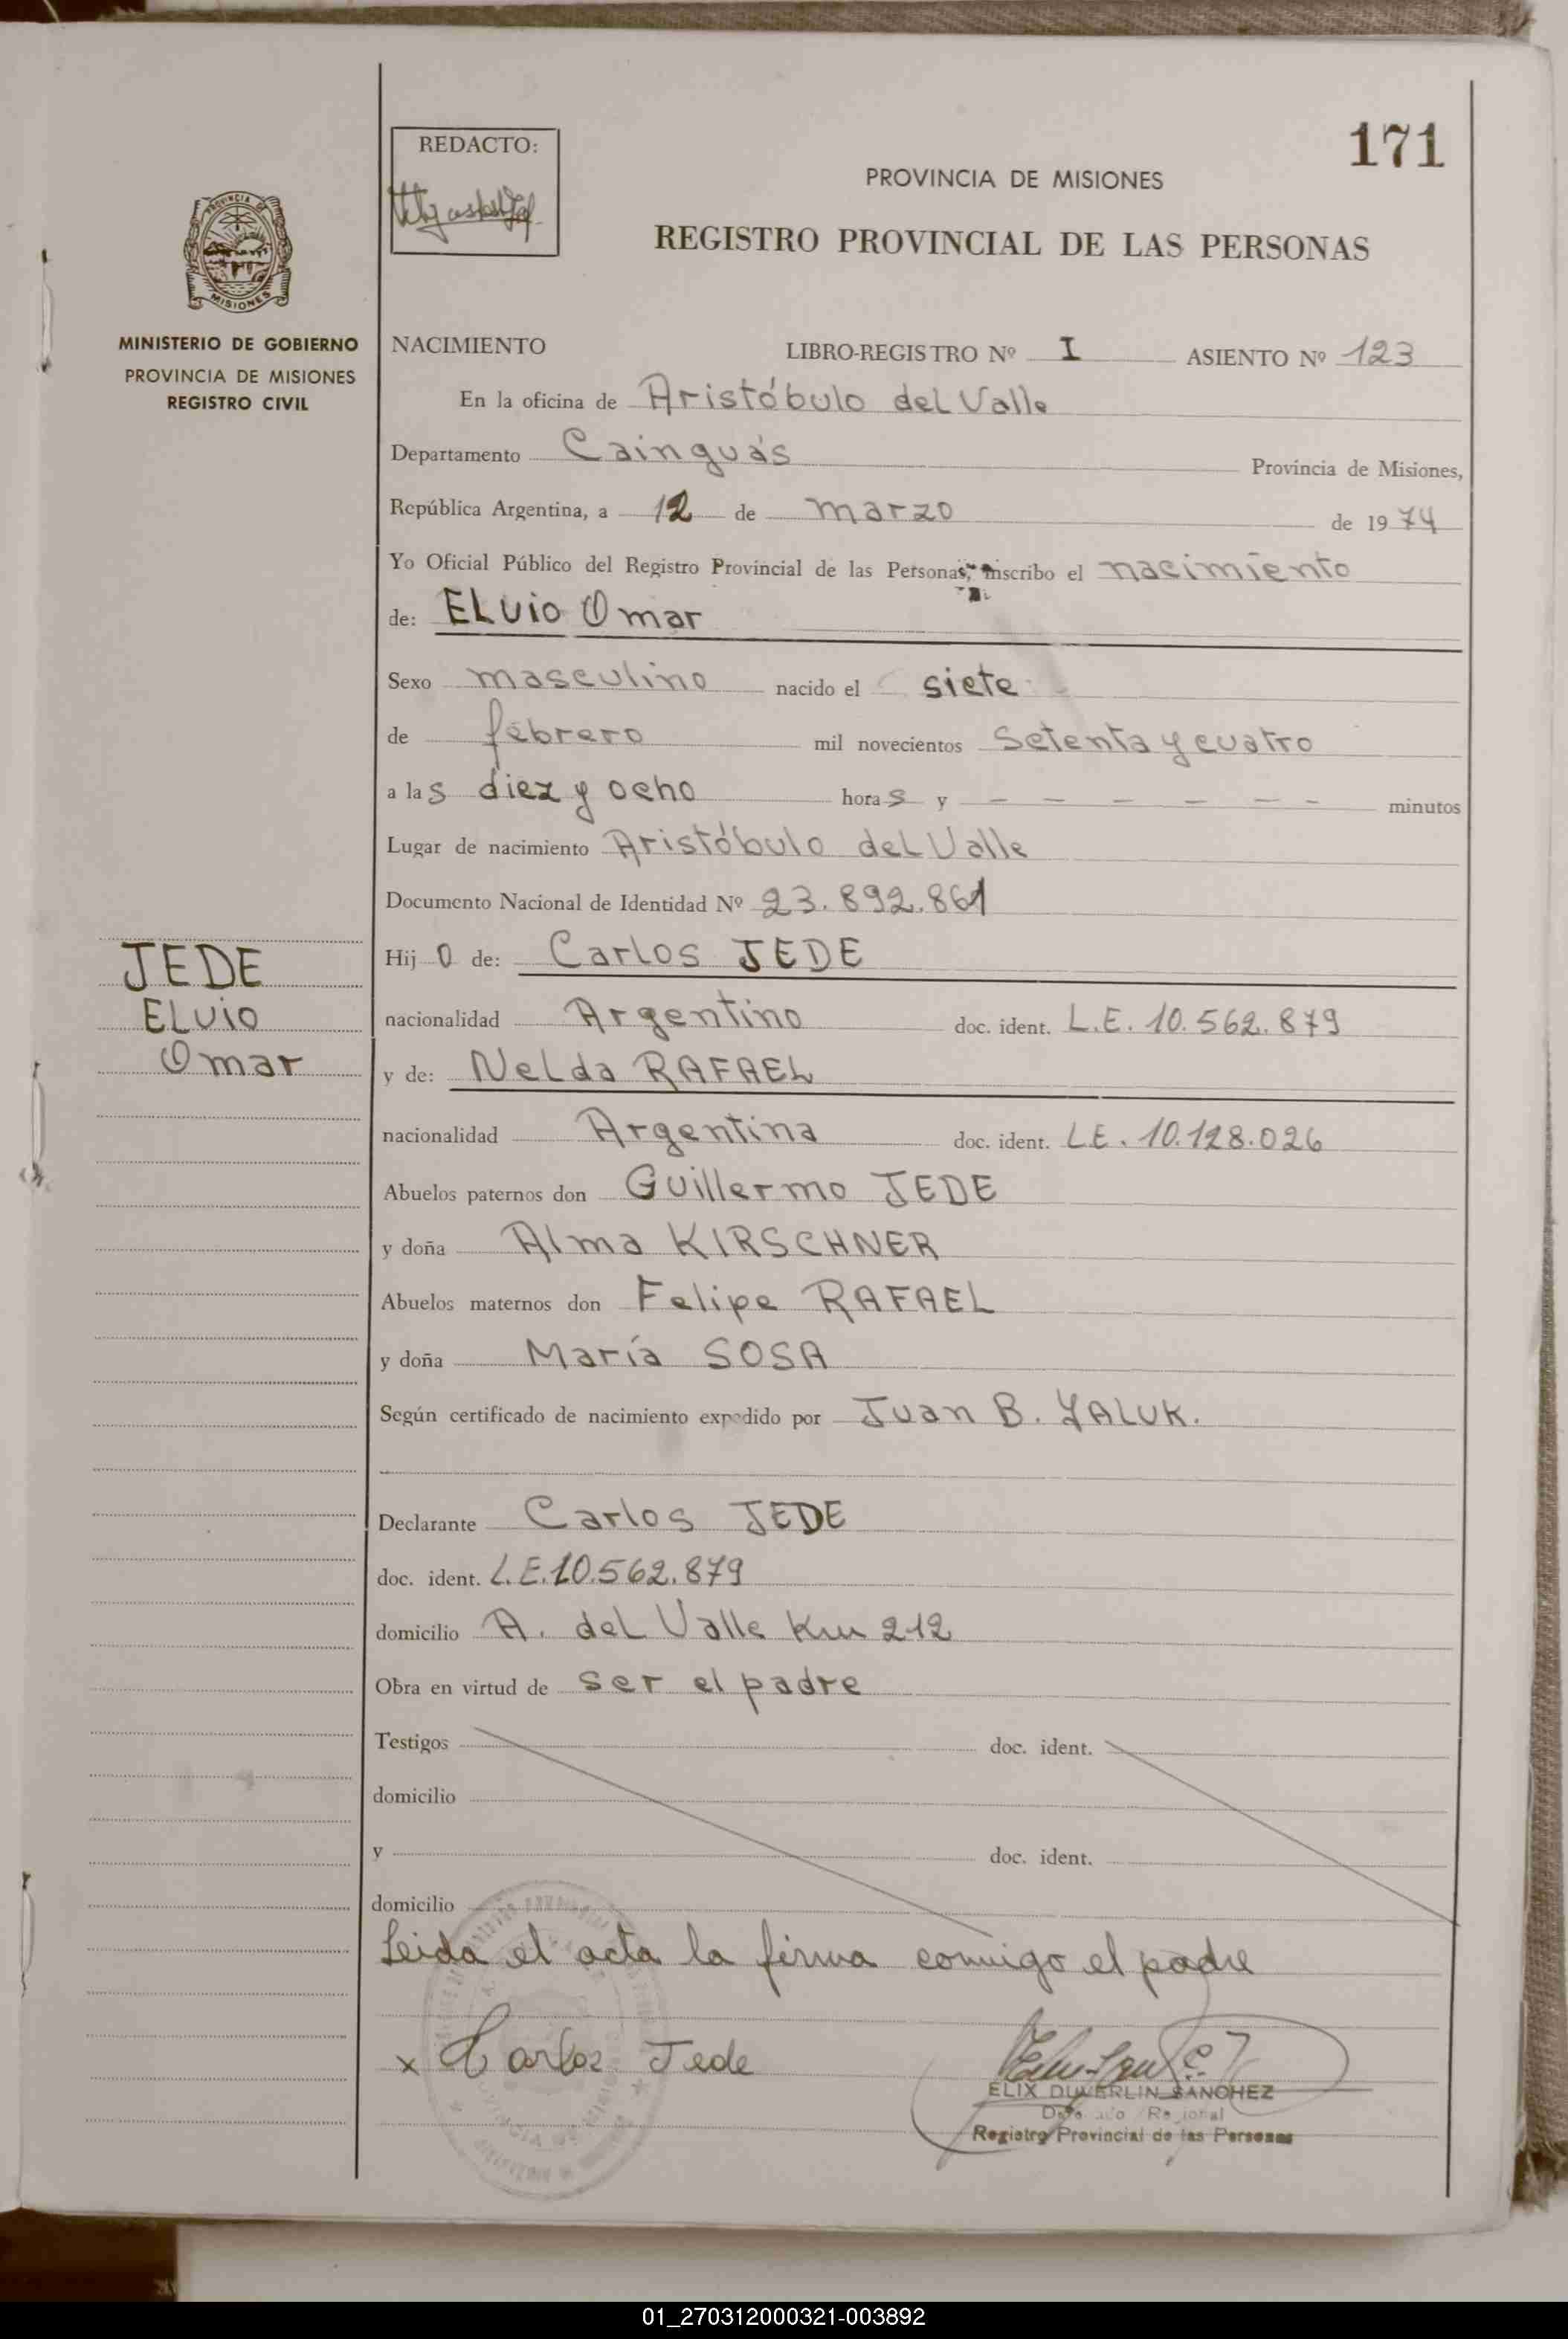 171
REDACTO:
PROVINCIA DE MISIONES
REGISTRO PROVINCIAL DE LAS PERSONAS
PROVINCIA DE
MISIONES
MINISTERIO DE GOBIERNO
PROVINCIA DE MISIONES
REGISTRO CIVIL
NACIMIENTO LIBRO-REGISTRO Nº I ASIENTO Nº 123
En la oficina de Aristóbulo del Valle
Departamento Cainguás Provincia de Misiones,
República Argentina, a 12 de marzo de 1974
Yo Oficial Público del Registro Provincial de las Personas, inscribo el nacimiento
de: ELvio Omar
Sexo masculino nacido el siete
de febrero mil novecientos setenta y cuatro
a las diez y ocho horas y — — — — — — minutos
Lugar de nacimiento Aristóbulo del Valle
Documento Nacional de Identidad Nº 23.892.861
JEDE
ELvio
Omar
Hijo de: Carlos JEDE
nacionalidad Argentino doc. ident. L.E. 10.562.879
y de: Nelda RAFAEL
nacionalidad Argentina doc. ident. L.E. 10.128.026
Abuelos paternos don Guillermo JEDE
y doña Alma KIRSCHNER
Abuelos maternos don Felipe RAFAEL
y doña María SOSA
Según certificado de nacimiento expedido por Juan B. YALUK.
Declarante Carlos JEDE
doc. ident. L.E. 10.562.879
domicilio A. del Valle Km 212
Obra en virtud de ser el padre
Testigos doc. ident.
domicilio
y doc. ident.
domicilio
Leida el acta la firma conmigo el padre
x Carlos Jede
ELIX DUVERLIN SANCHEZ
Registro Provincial de las Personas
01_270312000321-003892